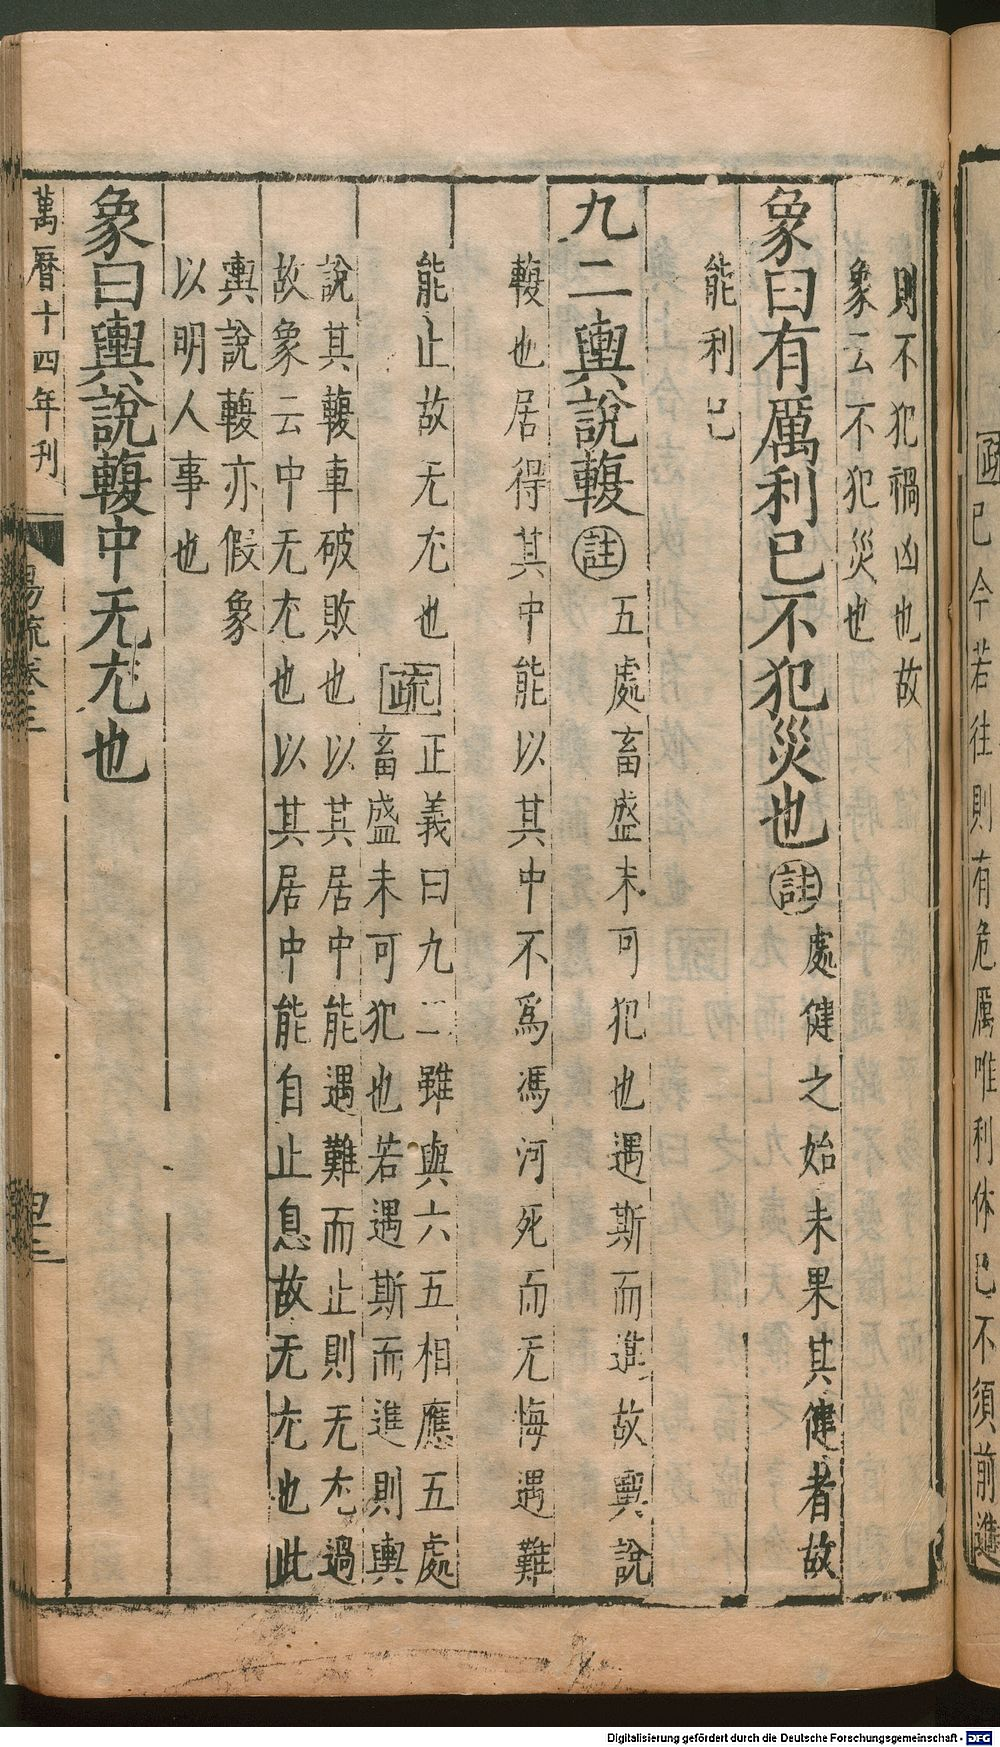 疏已今若往則有危厲唯利休已不須前進
則不犯禍凶也故
象云不犯災也
象曰有厲利已不犯災也註處健之始未果其健者故
能利已
九二輿說輹註五處畜盛未可犯也遇斯而進故輿說
輹也居得其中能以其中不爲馮河死而无悔遇難
能止故无尤也疏正義曰九二雖與六五相應五處
畜盛未可犯也若遇斯而進則輿
說其輹車破敗也以其居中能遇難而止則无尤過
故象云中无尤也以其居中能自止息故无尤也此
輿說輹亦假象
以明人事也
象曰輿說輹中无尤也
萬曆十四年刊
易疏卷三
四二
Digitalisierung gefördert durch die Deutsche Forschungsgemeinschaft - DFG